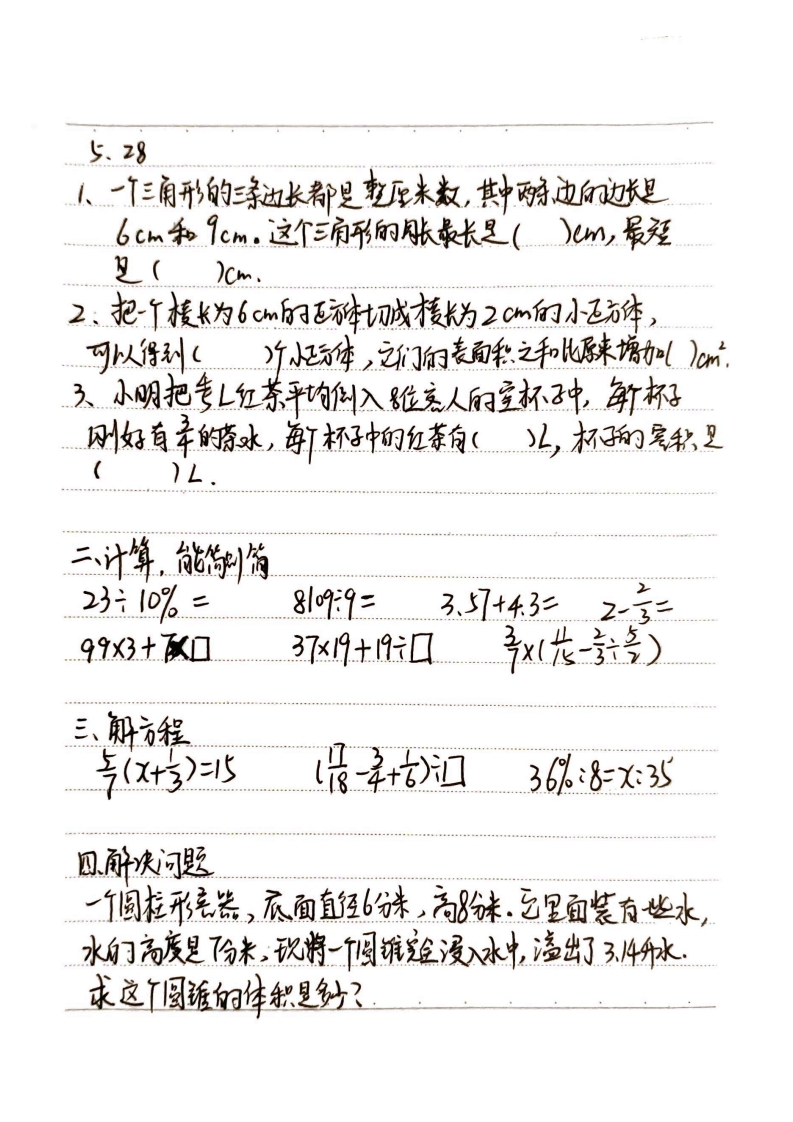 5.28
1、一个三角形的三条边长都是整厘米数,其中两条边的边长是
6cm和9cm。这个三角形的周长最长是( )cm,最短
是( )cm.
2、把一个棱长为6cm的正方体切成棱长为2cm的小正方体,
可以得到( )个小正方体,它们的表面积之和比原来增加( )cm².
3、小明把 L红茶平均倒入8位客人的空杯子中,每个杯子
刚好有 的茶水,每个杯子中的红茶有( )L,杯子的容积是
( )L.
二、计算,能简则简
23÷10%= 8109÷9= 3.57+4.3= 2-2/3=
99×3+ □ 37×19+19÷□ 3/7×(11/15-2/3÷5/2)
三、解方程
5/7(x+1/3)=15 (17/18-3/4+1/6)÷□ 36%:8=x:35
四.解决问题
一个圆柱形容器,底面直径6分米,高8分米.它里面装有一些水,
水的高度是7分米,现将一个圆锥完全浸入水中,溢出了3.14升水.
求这个圆锥的体积是多少?